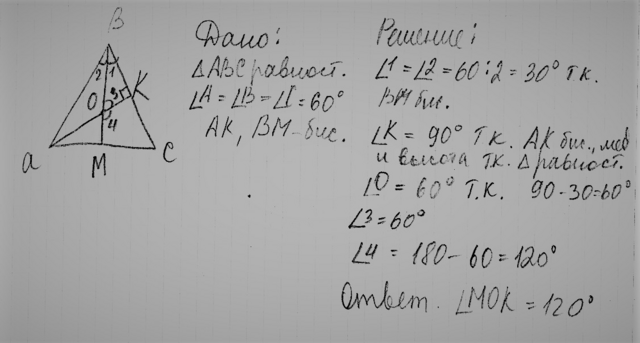 B
2 1
O 3 K
4
a M C
Дано:
△ABC равност.
∠A = ∠B = ∠C = 60°
AK, BM - бис.
Решение:
∠1 = ∠2 = 60 : 2 = 30° т.к.
BM бис.
∠K = 90° т.к. AK бис., мед
и высота т.к. △ равност.
∠O = 60° т.к. 90 - 30 = 60°
∠3 = 60°
∠4 = 180 - 60 = 120°
Ответ. ∠MOK = 120°